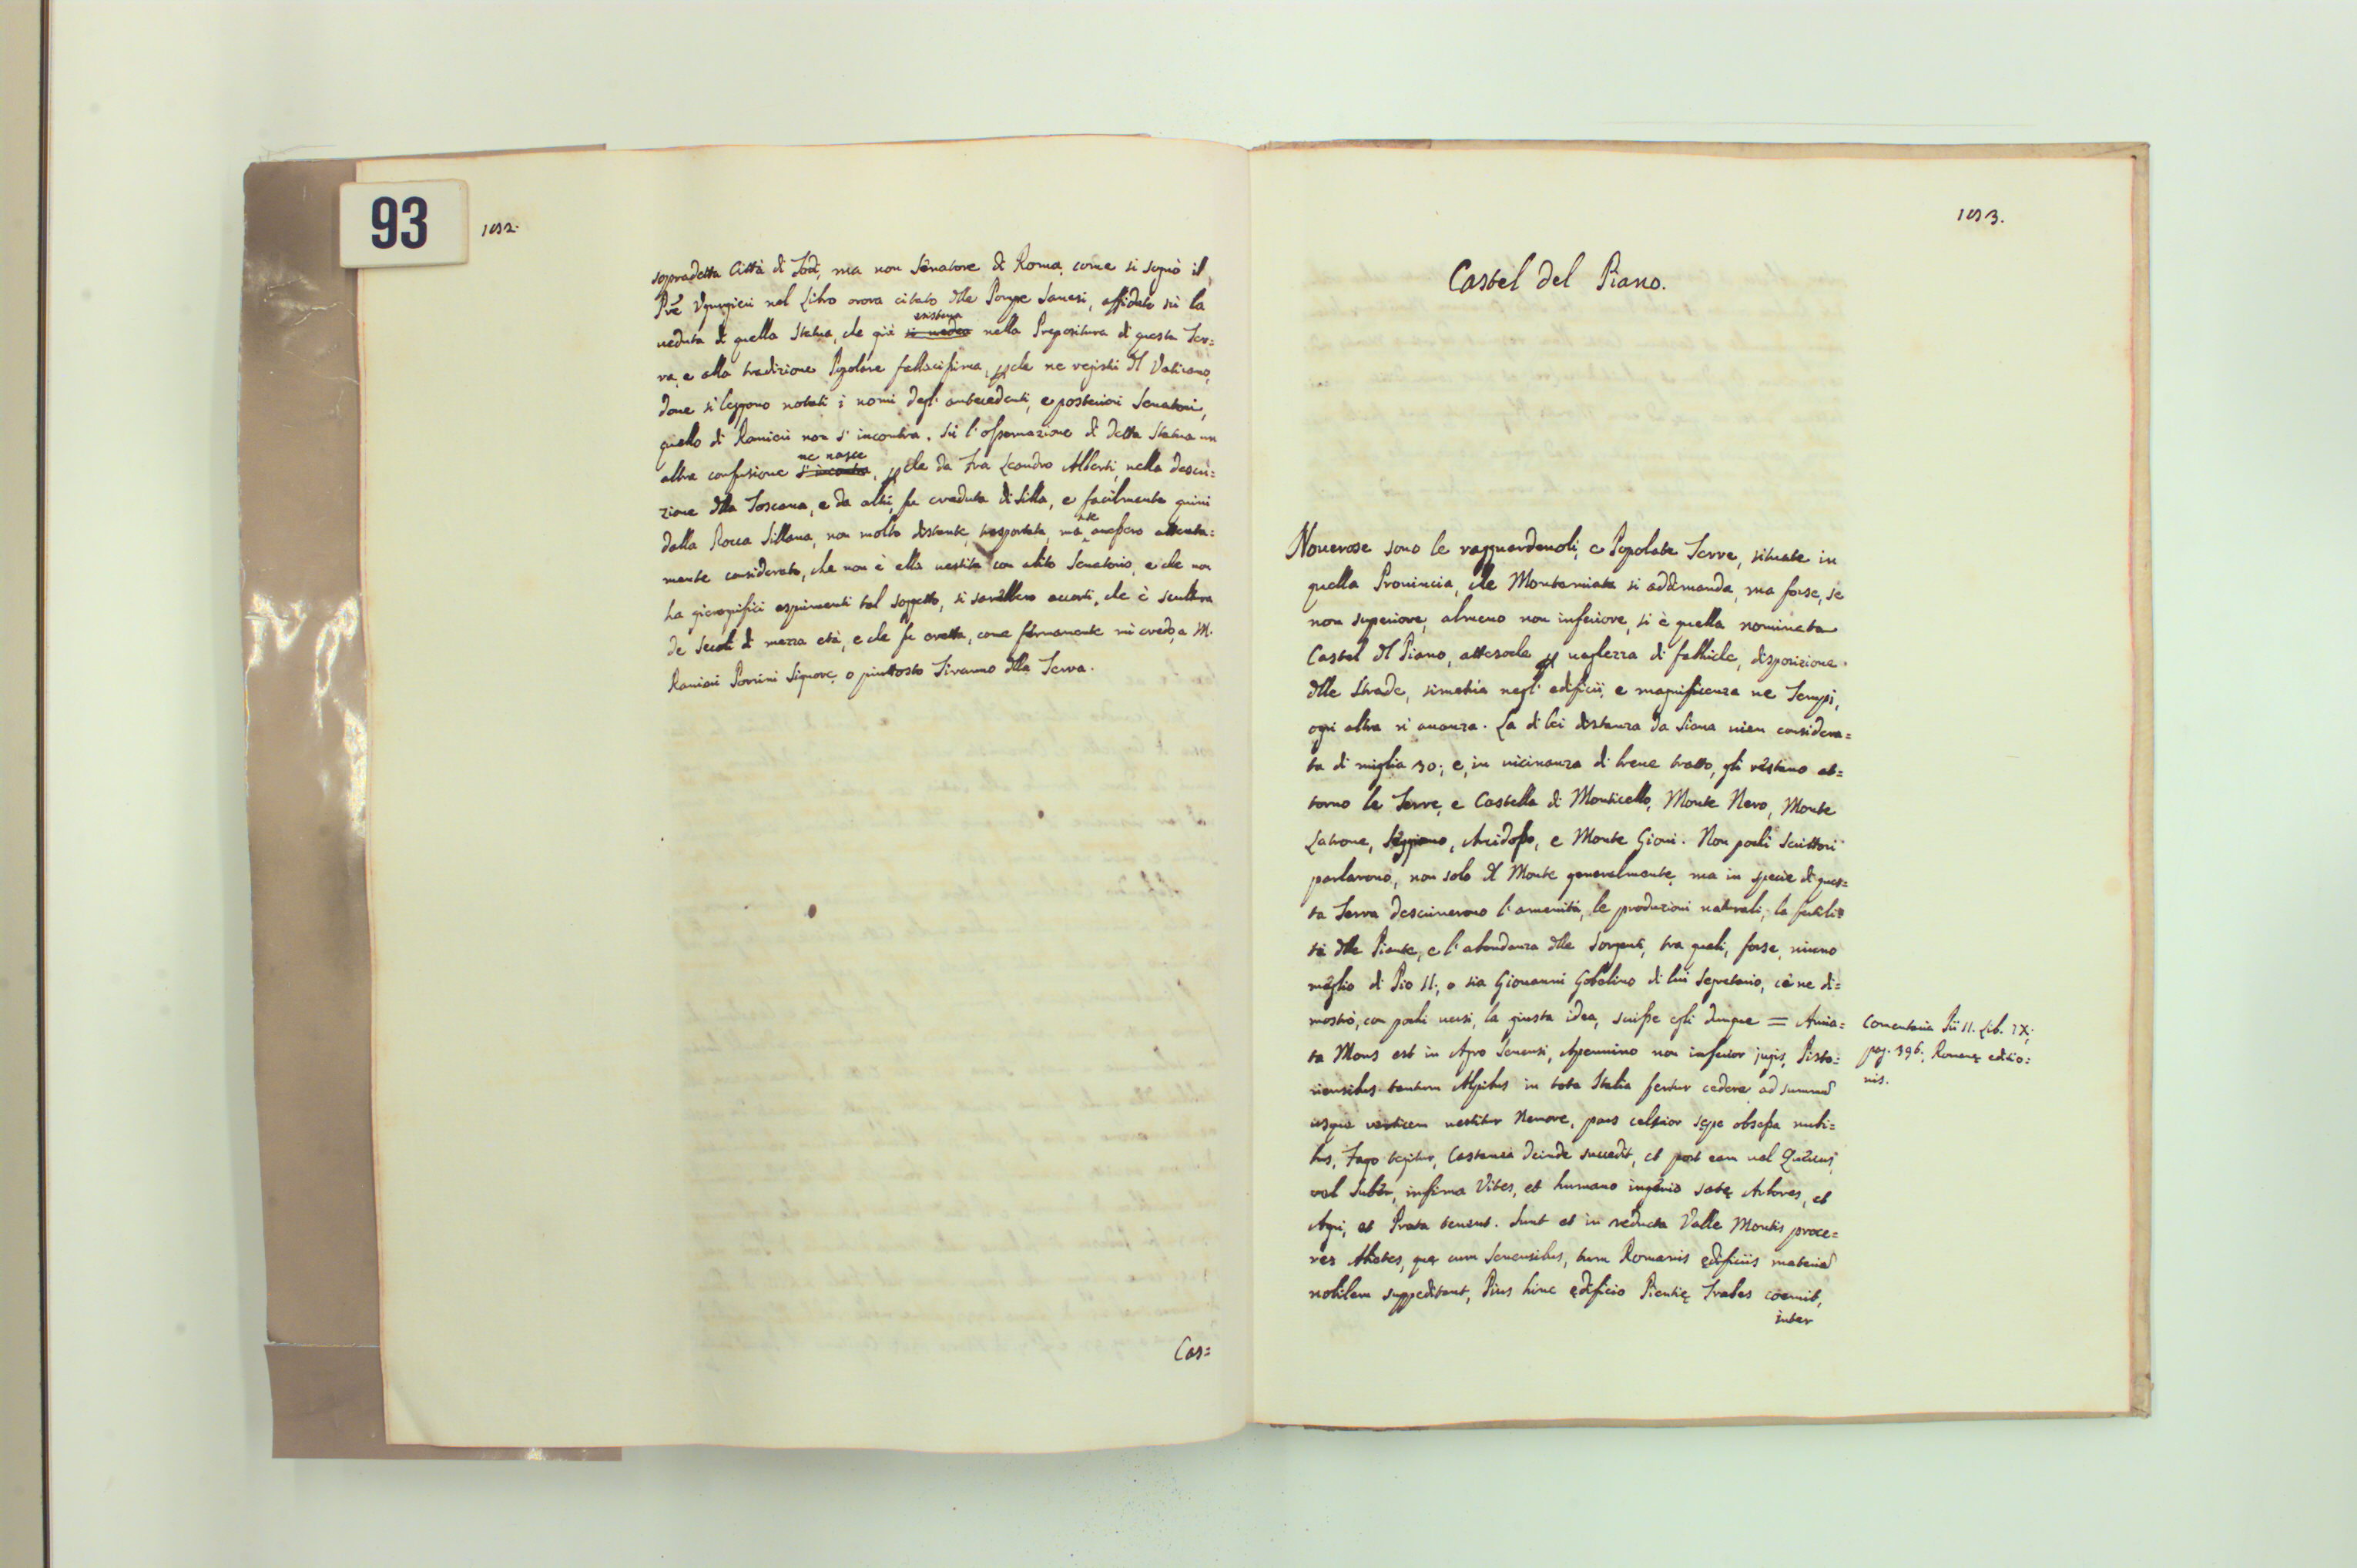 93
1052.
sopradetta Città di Todi, ma non Senatore di Roma, come si sognò il
Prẽ Vgurgieri nel Libro ovora citato dlle Pompe Sanesi, affidato sù la
ueduta di quella Statua, che già si uedea esisteua nella Prepositura di questa Ter=
ra, e alla tradizione Popolare fallacissima, pche ne registri dl Vaticano,
doue si leggono notati i nomi degl' antecedenti, e posteriori Senatori,
quello di Ranieri non s' incontra. Sù l' osseruazione di detta Statua un
altra confusione s' incontra ne nasce, pche da Fra Leandro Alberti, nella descri=
zione dlla Toscana, e da altri, fu creduta di Silla, e facilmente quiui
dalla Rocca Sillana, non molto distante, trasportata, ma se auessero attenta=
mente considerato, che non è ella uestita con abito Senatorio, e che non
ha gieroglifici esprimenti tal soggetto, si sarebbero accorti, che è scultura
de secoli di mezza età, e che fu eretta, come fermamente mi credo, a M.
Ranieri Porrini Signore, o piuttosto Tiranno dlla Terra.
Cas=
1053.
Castel del Piano.
Nouerose sono le ragguardeuoli, e Popolate Terre, situate in
quella Prouincia, che Montamiata si addimanda, ma forse, se
non superiore, almeno non inferiore, si è quella nominata
Castel dl Piano, attesoche p uaghezza di fabbiche, disposizione
dlle Strade, simetria negl' edificii, e magnificenza ne Tempj,
ogni altra si auanza. La di lei distanza da Siena uien considera=
ta di miglia 30; e, in uicinanza di breue tratto, gli restano at=
torno le Terre, e Castella di Monticello, Monte Nero, Monte
Latrone, Seggiano, Arcidosso, e Monte Gioui. Non pochi Scrittori
parlarono, non solo dl Monte generalmente, ma in specie di ques=
ta Terra descriuerono l' amenità, le produzioni naturali, la fertili=
tà dlle Piante, e l' abondanza dlle Sorgenti, tra quali, forse, niuno
meglio di Pio II., o sia Giouanni Gobelino di lui Segretario, ce ne di=
mostrò, con pochi uersi, la giusta idea, scrisse egli dunque = Amia=
ta Mons est in Agro Senensi, Apennino non inferior jugis, Pisto=
riensibus tantum Alpibus in tota Italia fertur cedere, ad summũ
usque verticem uestitur Nemore, pars celsior sępe obsessa nubi=
bus, Fago tegitur, Castanea deinde succedit, et post eam uel Quercus,
vel Suber, infima Vites, et humano ingenio satę Arbores, et
Agri, et Prata tenent. Sunt et in reducta Valle Montis proce=
res Abietes, quę cum Senensibus, tum Romanis ędificiis materiã
nobilem suppeditant, Pius hinc ędificio Pientię Trabes coemit,
inter
Comentaria Pii II. Lib. IX;
pag. 396; Romanę editio=
nis.